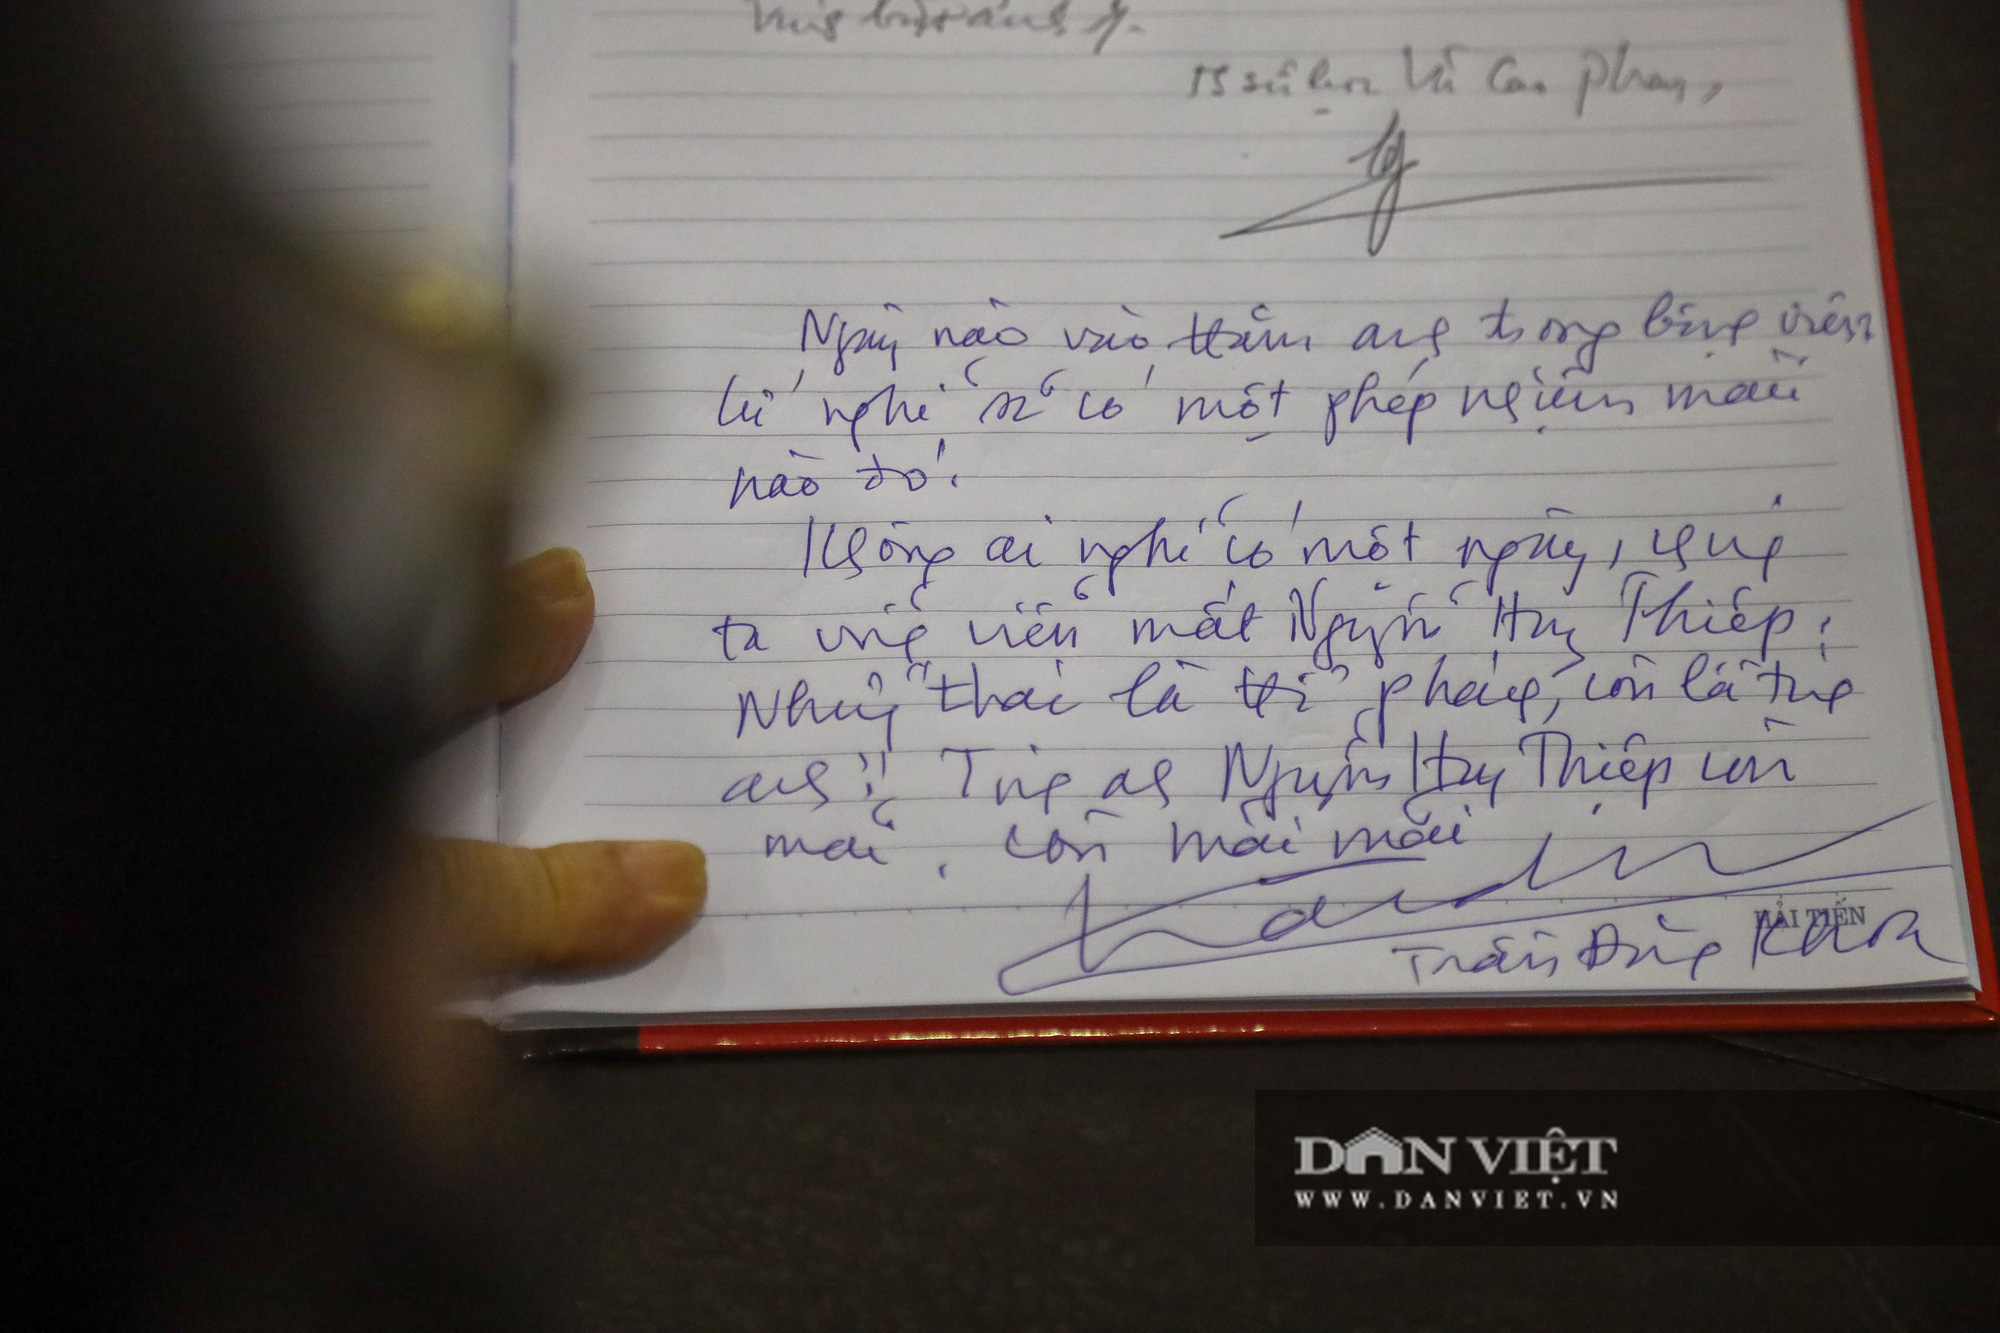 TS sử học Vũ Cao Phan,
Ngày nào vào thăm anh trong bệnh viện
cứ nghĩ sẽ có một phép nhiệm màu
nào đó.
Không ai nghĩ có một ngày, chúng
ta vĩnh viễn mất Nguyễn Huy Thiệp.
Nhưng "thác là thể phách, còn là tinh
anh"! Tinh anh Nguyễn Huy Thiệp còn
mãi, còn mãi mãi
Trần Đăng Khoa
HẢI TIẾN
DÂN VIỆT
WWW.DANVIET.VN